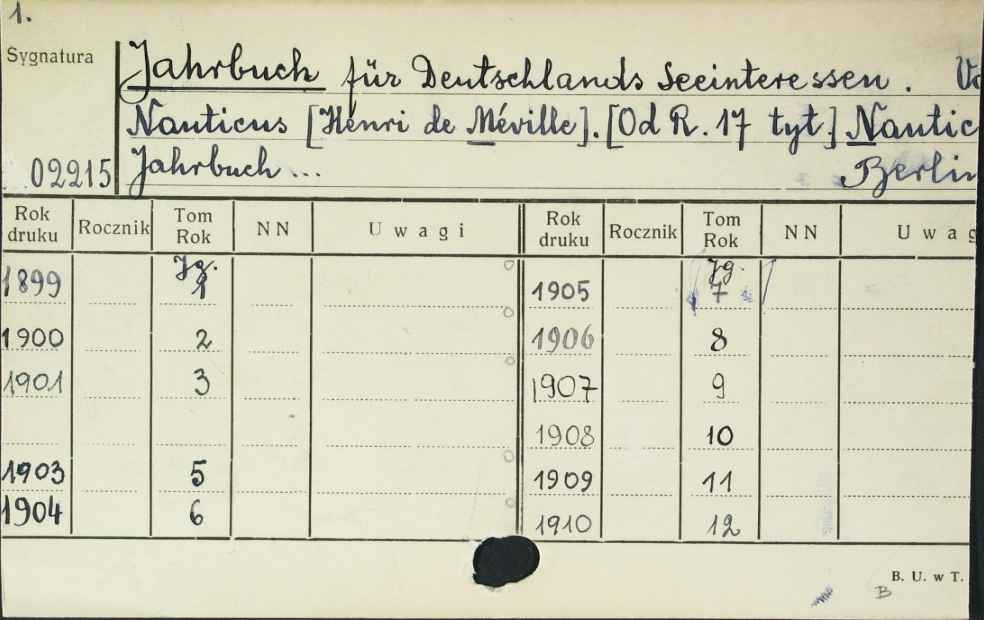 1.
Sygnatura
Jahrbuch für Deutschlands Seeinteressen.
Nauticus [Henri de Méville]. [Od R. 17 tyt.] Nautic
02215 Jahrbuch ... Berlin
Rok druku Rocznik Tom Rok NN Uwagi Rok druku Rocznik Tom Rok NN Uwag
Jg. Jg.
1899 1 1905 7
1900 2 1906 8
1901 3 1907 9
1908 10
1903 5 1909 11
1904 6 1910 12
B. U. w T.
B